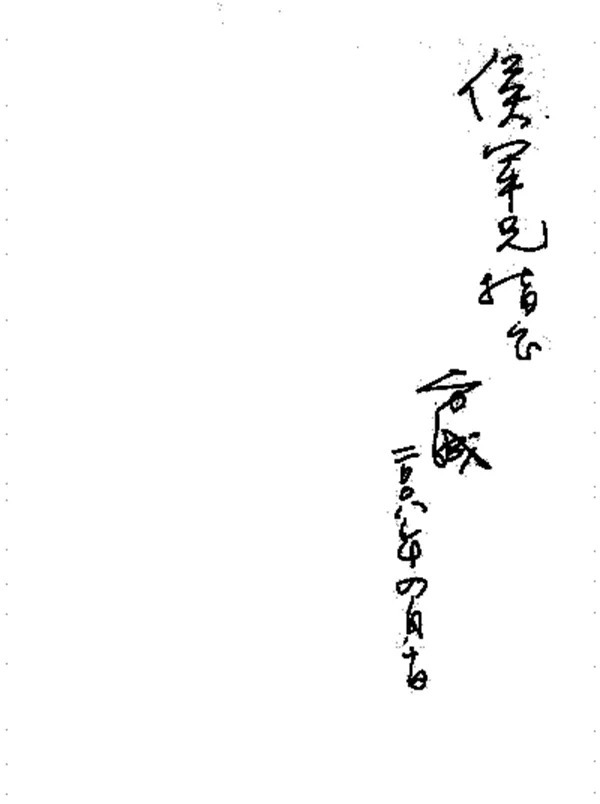 侯军兄指正
二〇〇八年四月十日